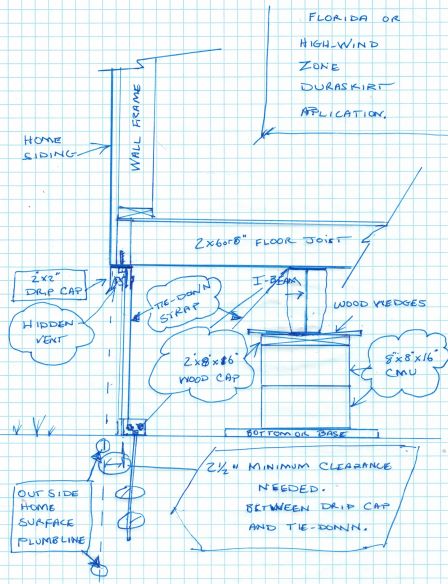 FLORIDA OR
HIGH-WIND
ZONE
DURASKIRT
APPLICATION.
HOME
SIDING
WALL FRAME
2x6 or 8" FLOOR JOIST
2"x2"
DRIP CAP
HIDDEN
VENT
TIE-DOWN
STRAP
I-BEAM
WOOD WEDGES
2"x8"x16"
WOOD CAP
8"x8"x16"
CMU
BOTTOM OR BASE
OUT SIDE
HOME
SURFACE
PLUMBLINE
2 1/2" MINIMUM CLEARANCE
NEEDED.
BETWEEN DRIP CAP
AND TIE-DOWN.